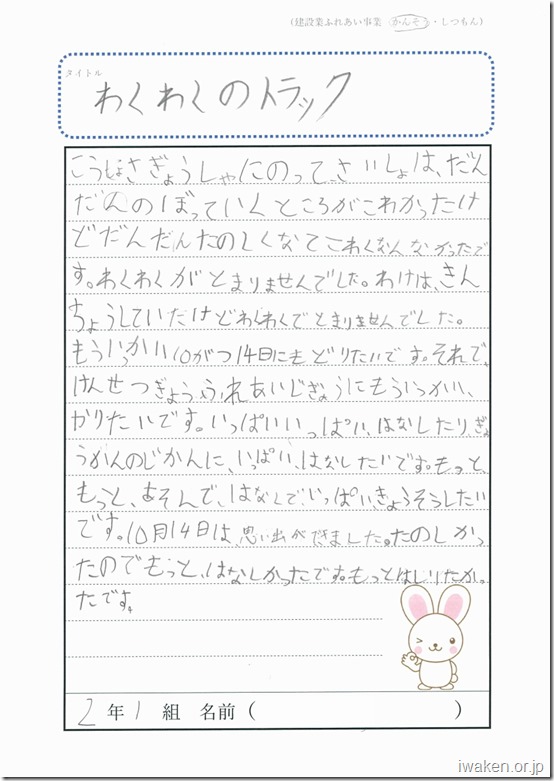 (建設業ふれあい事業 かんそう・しつもん)
タイトル
わくわくのトラック
こうしょさぎょうしゃにのって、さいしょは、だん
だんのぼっていくところがこわかったけ
どだんだんたのしくなてこわくなんなかったで
す。わくわくがとまりませんでした。わけは、きん
ちょうしていたけどわくわくでとまりませんでした。
もういっかい10がつ14日にもどりたいです。それで、
けんせつぎょうふれあいじぎょうにもういっかい、
がりたいです。いっぱいいっぱい、はなしたりぎょ
うかんのじかんに、いっぱい、はなしたいです。もっと、
もっと、あそんで、はなしで、いっぱい、きょうそうしたい
です。10月14日は、思い出ができました。たのしかっ
たのでもっと、はなしかったです。もっとはしりたかっ
たです。
2年1組 名前( )
iwaken.or.jp